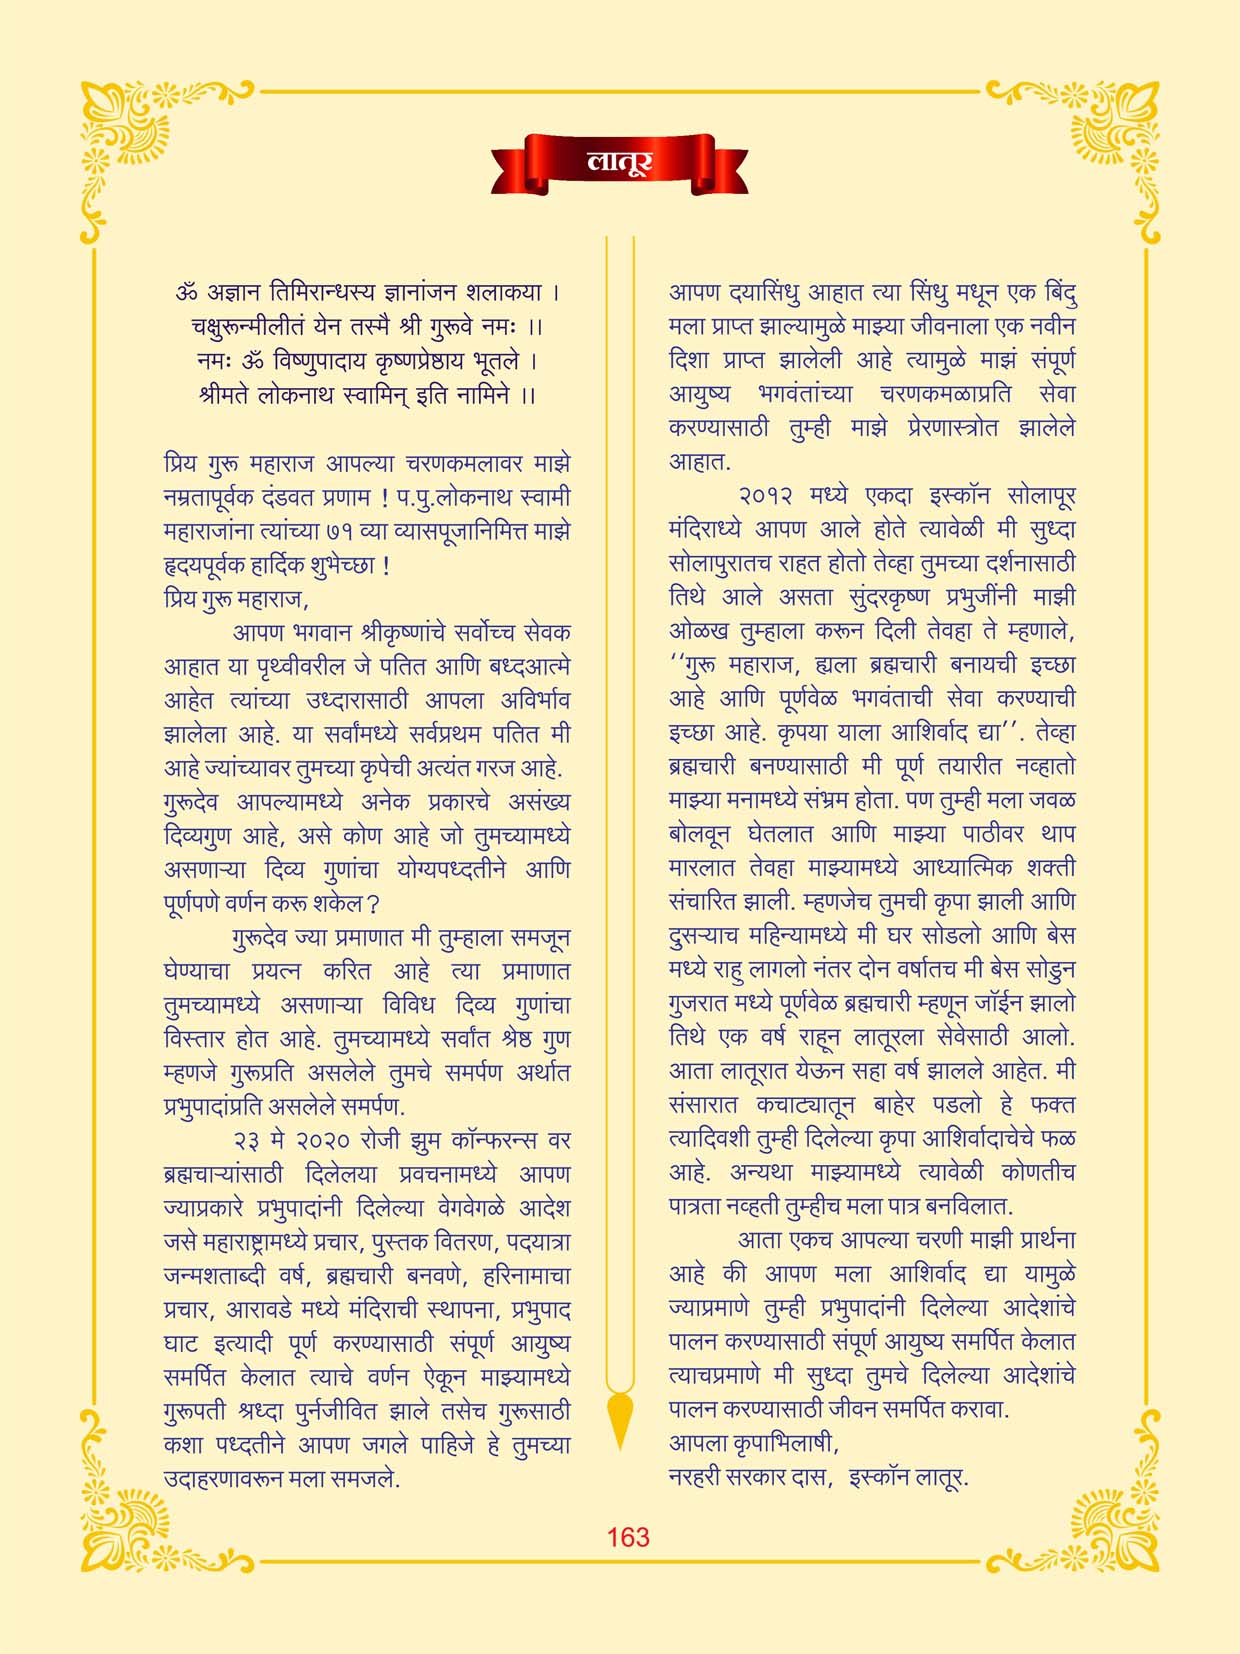 लातूर
ॐ अज्ञान तिमिरान्धस्य ज्ञानांजन शलाकया ।
चक्षुरून्मीलीतं येन तस्मै श्री गुरूवे नमः ।।
नमः ॐ विष्णुपादाय कृष्णप्रेष्ठाय भूतले ।
श्रीमते लोकनाथ स्वामिन् इति नामिने ।।
प्रिय गुरू महाराज आपल्या चरणकमलावर माझे
नम्रतापूर्वक दंडवत प्रणाम ! प.पु.लोकनाथ स्वामी
महाराजांना त्यांच्या ७१ व्या व्यासपूजानिमित्त माझे
हृदयपूर्वक हार्दिक शुभेच्छा !
प्रिय गुरू महाराज,
आपण भगवान श्रीकृष्णांचे सर्वोच्च सेवक
आहात या पृथ्वीवरील जे पतित आणि बध्दआत्मे
आहेत त्यांच्या उध्दारासाठी आपला अविर्भाव
झालेला आहे. या सर्वांमध्ये सर्वप्रथम पतित मी
आहे ज्यांच्यावर तुमच्या कृपेची अत्यंत गरज आहे.
गुरूदेव आपल्यामध्ये अनेक प्रकारचे असंख्य
दिव्यगुण आहे, असे कोण आहे जो तुमच्यामध्ये
असणाऱ्या दिव्य गुणांचा योग्यपध्दतीने आणि
पूर्णपणे वर्णन करू शकेल?
गुरूदेव ज्या प्रमाणात मी तुम्हाला समजून
घेण्याचा प्रयत्न करित आहे त्या प्रमाणात
तुमच्यामध्ये असणाऱ्या विविध दिव्य गुणांचा
विस्तार होत आहे. तुमच्यामध्ये सर्वांत श्रेष्ठ गुण
म्हणजे गुरूप्रति असलेले तुमचे समर्पण अर्थात
प्रभुपादांप्रति असलेले समर्पण.
२३ मे २०२० रोजी झुम कॉन्फरन्स वर
ब्रह्मचाऱ्यांसाठी दिलेलया प्रवचनामध्ये आपण
ज्याप्रकारे प्रभुपादांनी दिलेल्या वेगवेगळे आदेश
जसे महाराष्ट्रामध्ये प्रचार, पुस्तक वितरण, पदयात्रा
जन्मशताब्दी वर्ष, ब्रह्मचारी बनवणे, हरिनामाचा
प्रचार, आरावडे मध्ये मंदिराची स्थापना, प्रभुपाद
घाट इत्यादी पूर्ण करण्यासाठी संपूर्ण आयुष्य
समर्पित केलात त्याचे वर्णन ऐकून माझ्यामध्ये
गुरूपती श्रध्दा पुर्नजीवित झाले तसेच गुरूसाठी
कशा पध्दतीने आपण जगले पाहिजे हे तुमच्या
उदाहरणावरून मला समजले.
आपण दयासिंधु आहात त्या सिंधु मधून एक बिंदु
मला प्राप्त झाल्यामुळे माझ्या जीवनाला एक नवीन
दिशा प्राप्त झालेली आहे त्यामुळे माझं संपूर्ण
आयुष्य भगवंतांच्या चरणकमळाप्रति सेवा
करण्यासाठी तुम्ही माझे प्रेरणास्त्रोत झालेले
आहात.
२०१२ मध्ये एकदा इस्कॉन सोलापूर
मंदिराध्ये आपण आले होते त्यावेळी मी सुध्दा
सोलापुरातच राहत होतो तेव्हा तुमच्या दर्शनासाठी
तिथे आले असता सुंदरकृष्ण प्रभुजींनी माझी
ओळख तुम्हाला करून दिली तेवहा ते म्हणाले,
‘‘गुरू महाराज, ह्यला ब्रह्मचारी बनायची इच्छा
आहे आणि पूर्णवेळ भगवंताची सेवा करण्याची
इच्छा आहे. कृपया याला आशिर्वाद द्या’’. तेव्हा
ब्रह्मचारी बनण्यासाठी मी पूर्ण तयारीत नव्हातो
माझ्या मनामध्ये संभ्रम होता. पण तुम्ही मला जवळ
बोलवून घेतलात आणि माझ्या पाठीवर थाप
मारलात तेवहा माझ्यामध्ये आध्यात्मिक शक्ती
संचारित झाली. म्हणजेच तुमची कृपा झाली आणि
दुसऱ्याच महिन्यामध्ये मी घर सोडलो आणि बेस
मध्ये राहु लागलो नंतर दोन वर्षातच मी बेस सोडुन
गुजरात मध्ये पूर्णवेळ ब्रह्मचारी म्हणून जॉईन झालो
तिथे एक वर्ष राहून लातूरला सेवेसाठी आलो.
आता लातूरात येऊन सहा वर्ष झालले आहेत. मी
संसारात कचाट्यातून बाहेर पडलो हे फक्त
त्यादिवशी तुम्ही दिलेल्या कृपा आशिर्वादाचेचे फळ
आहे. अन्यथा माझ्यामध्ये त्यावेळी कोणतीच
पात्रता नव्हती तुम्हीच मला पात्र बनविलात.
आता एकच आपल्या चरणी माझी प्रार्थना
आहे की आपण मला आशिर्वाद द्या यामुळे
ज्याप्रमाणे तुम्ही प्रभुपादांनी दिलेल्या आदेशांचे
पालन करण्यासाठी संपूर्ण आयुष्य समर्पित केलात
त्याचप्रमाणे मी सुध्दा तुमचे दिलेल्या आदेशांचे
पालन करण्यासाठी जीवन समर्पित करावा.
आपला कृपाभिलाषी,
नरहरी सरकार दास, इस्कॉन लातूर.
163